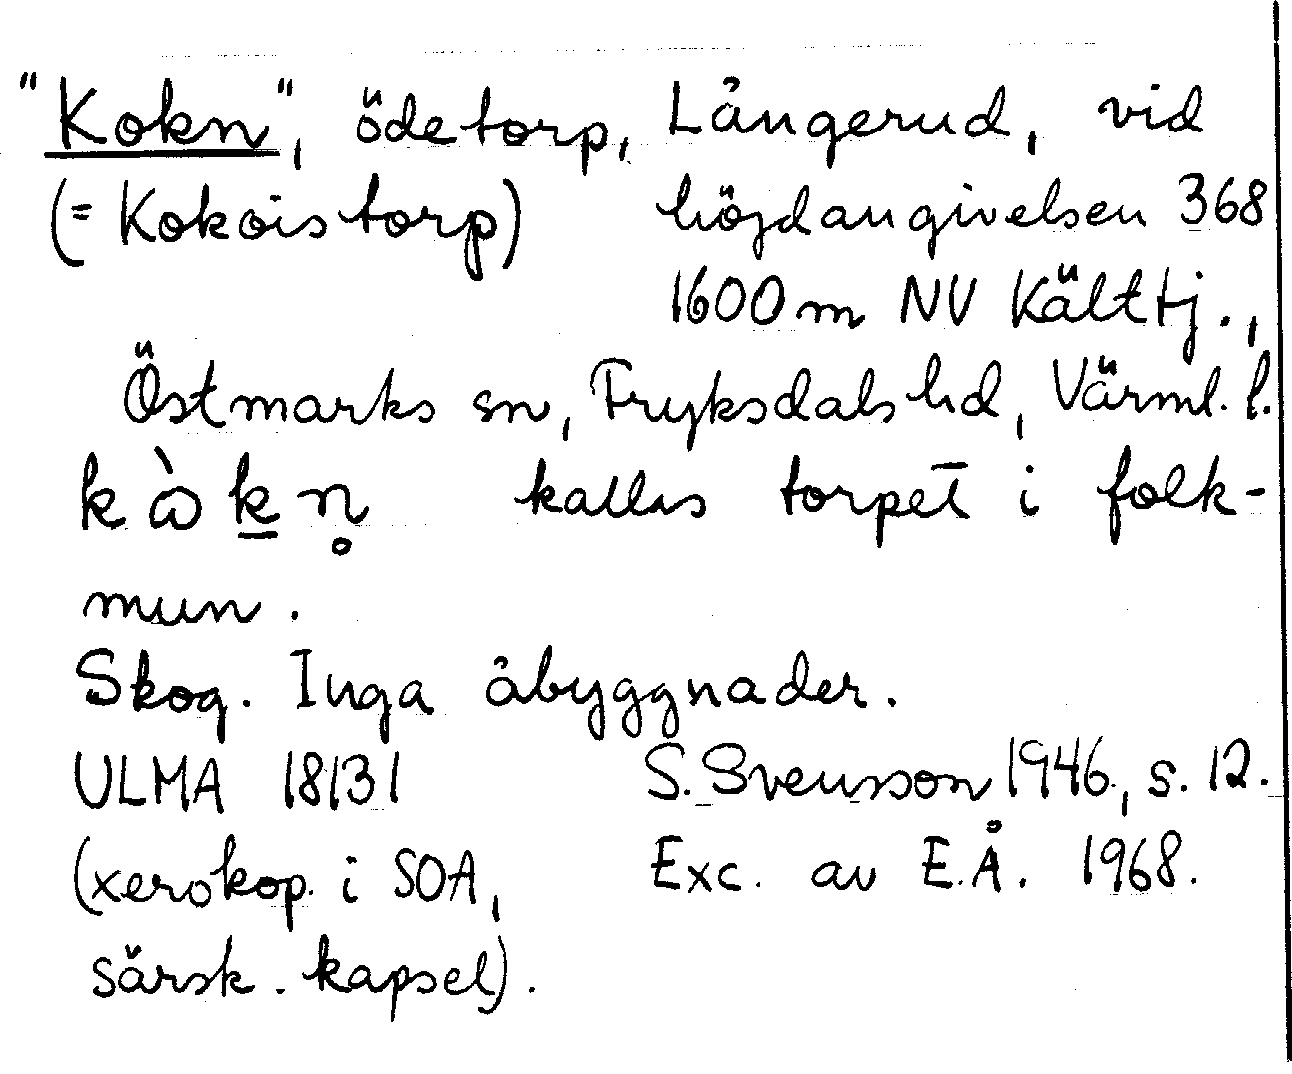 "Kokn", ödetorp, Långerud, vid
(= Kokoistorp) höjdangivelsen 368
1600 m NV Kälttj.,
Östmarks sn, Fryksdals hd, Värml. l.
k ὼ k̲ n̥ kallas torpet̄ i folk-
mun.
Skog. Inga åbyggnader.
ULMA 18131 S. Svensson 1946, s. 12.
(xerokop. i SOA, Exc. av E.Å. 1968.
särsk. kapsel).